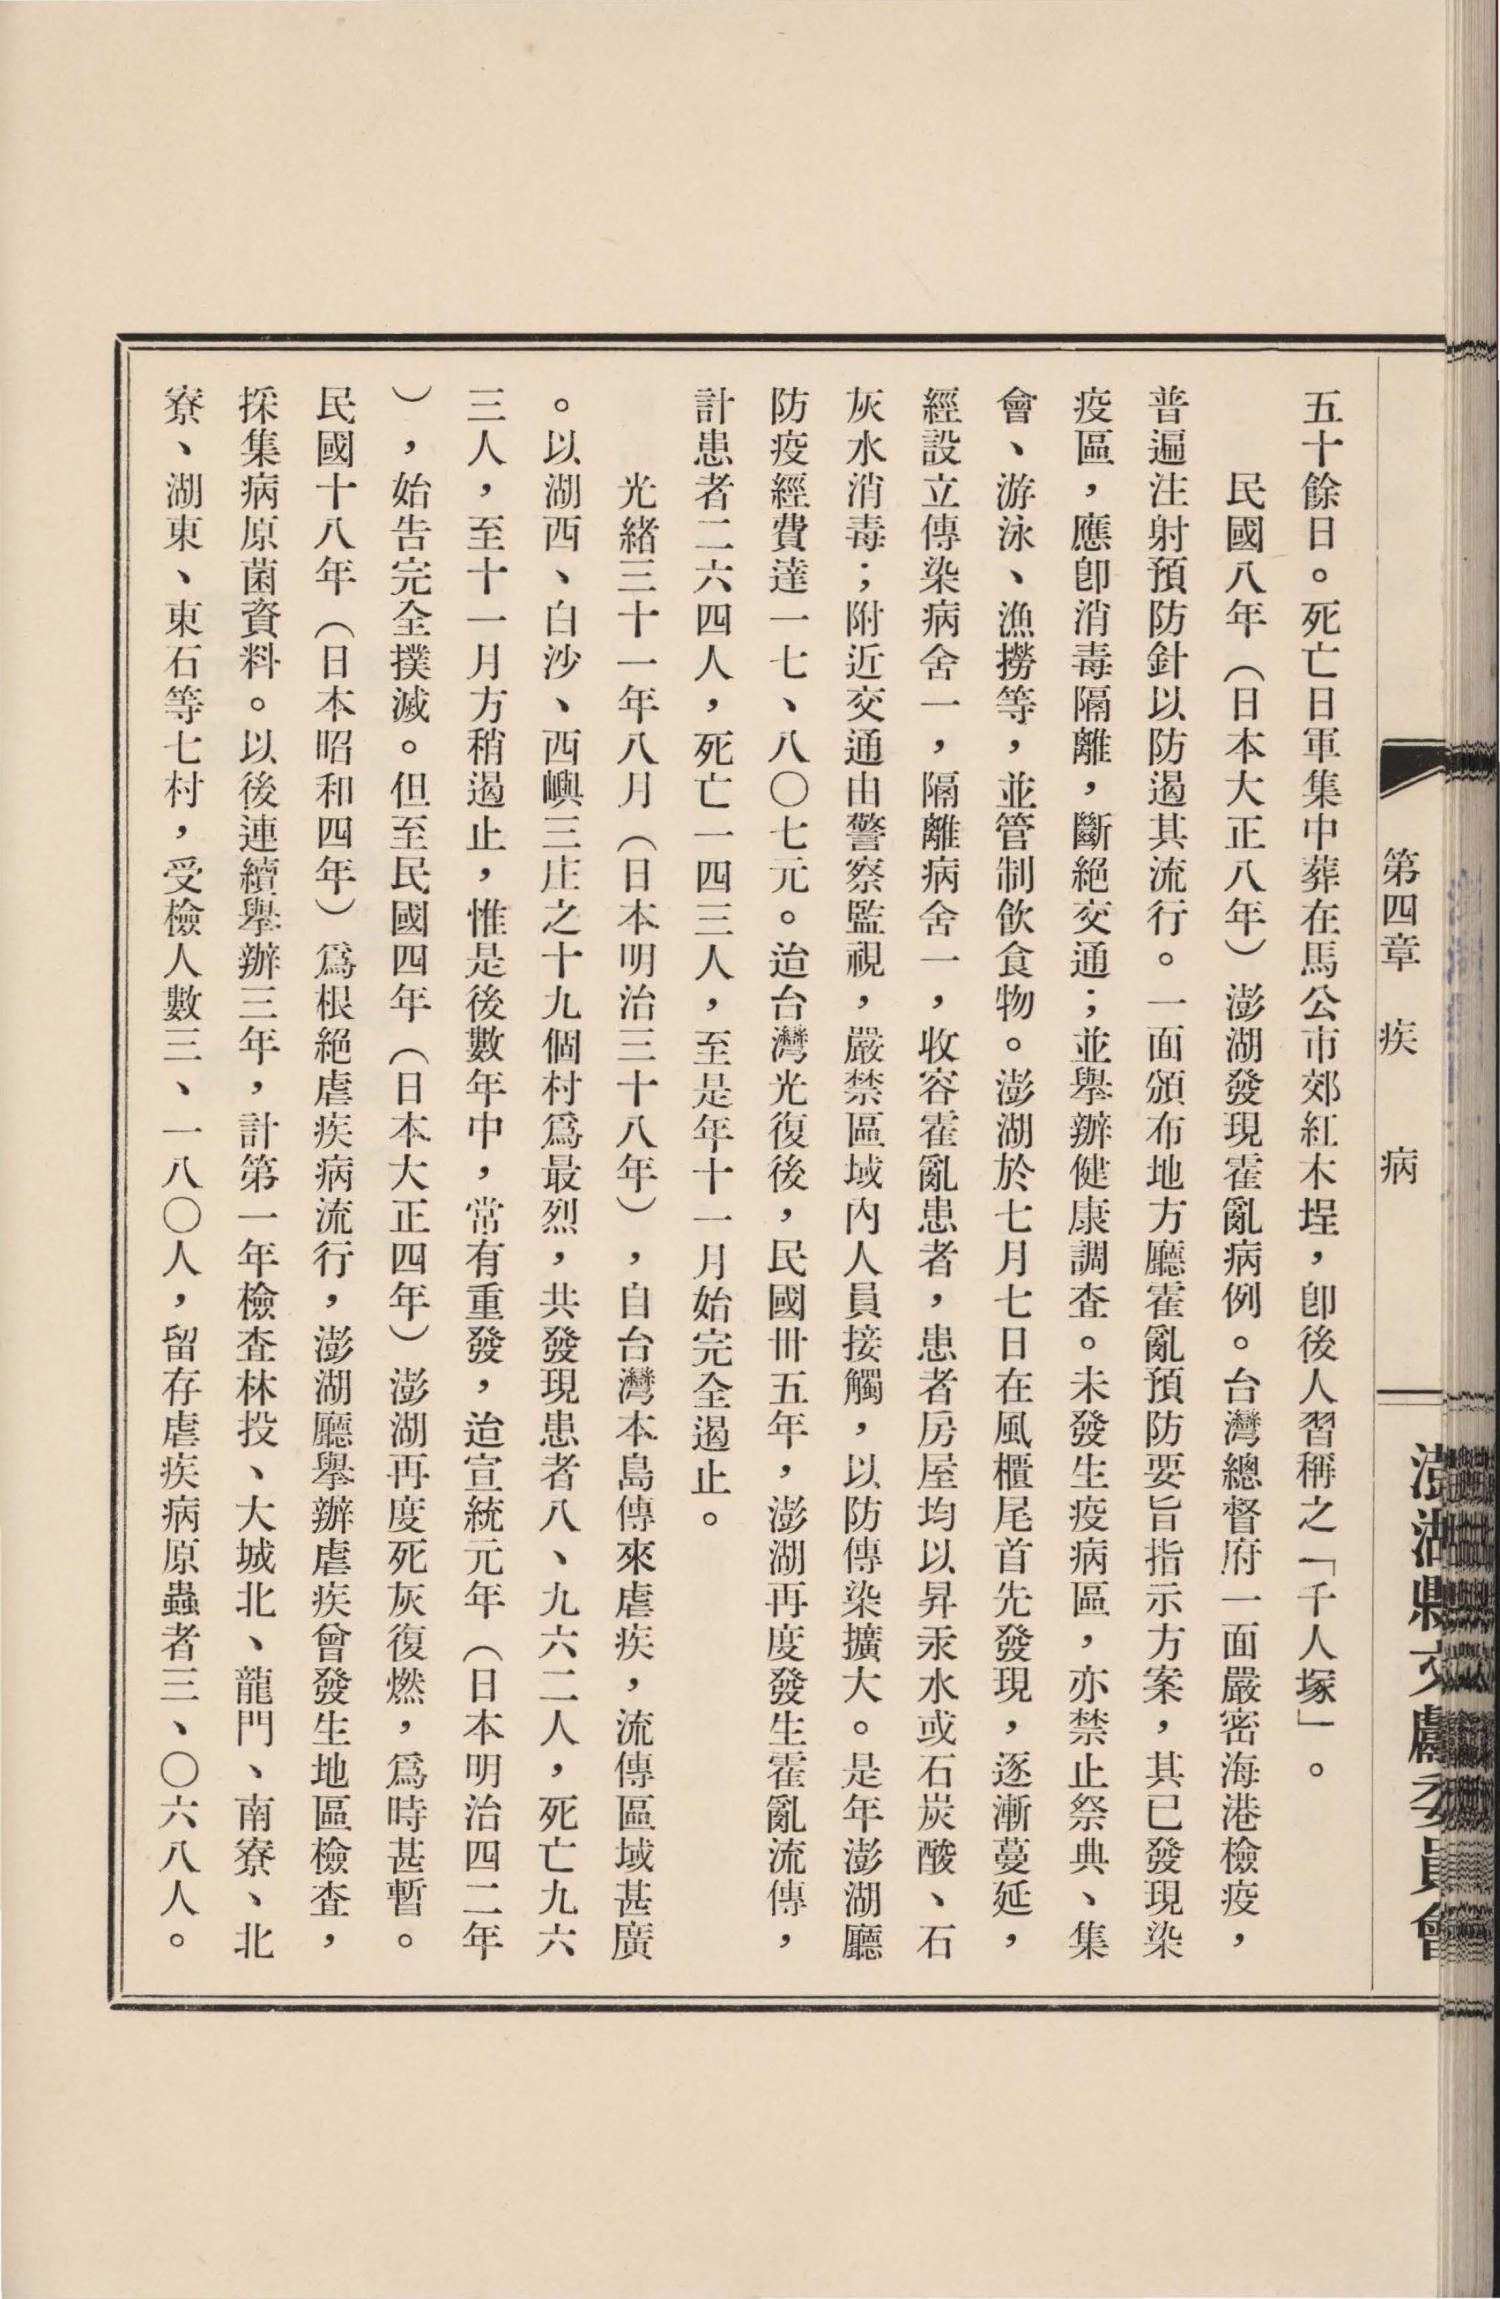 第四章　疾　　病
澎湖縣文獻委員會
五十餘日。死亡日軍集中葬在馬公市郊紅木埕，卽後人習稱之「千人塚」。
民國八年（日本大正八年）澎湖發現霍亂病例。台灣總督府一面嚴密海港檢疫，
普遍注射預防針以防遏其流行。一面頒布地方廳霍亂預防要旨指示方案，其已發現染
疫區，應卽消毒隔離，斷絕交通；並舉辦健康調查。未發生疫病區，亦禁止祭典、集
會、游泳、漁撈等，並管制飲食物。澎湖於七月七日在風櫃尾首先發現，逐漸蔓延，
經設立傳染病舍一，隔離病舍一，收容霍亂患者，患者房屋均以昇汞水或石炭酸、石
灰水消毒；附近交通由警察監視，嚴禁區域內人員接觸，以防傳染擴大。是年澎湖廳
防疫經費達一七、八〇七元。迨台灣光復後，民國卅五年，澎湖再度發生霍亂流傳，
計患者二六四人，死亡一四三人，至是年十一月始完全遏止。
光緒三十一年八月（日本明治三十八年），自台灣本島傳來虐疾，流傳區域甚廣
。以湖西、白沙、西嶼三庄之十九個村爲最烈，共發現患者八、九六二人，死亡九六
三人，至十一月方稍遏止，惟是後數年中，常有重發，迨宣統元年（日本明治四二年
），始告完全撲滅。但至民國四年（日本大正四年）澎湖再度死灰復燃，爲時甚暫。
民國十八年（日本昭和四年）爲根絕虐疾病流行，澎湖廳舉辦虐疾曾發生地區檢查，
採集病原菌資料。以後連續舉辦三年，計第一年檢查林投、大城北、龍門、南寮、北
寮、湖東、東石等七村，受檢人數三、一八〇人，留存虐疾病原蟲者三、〇六八人。